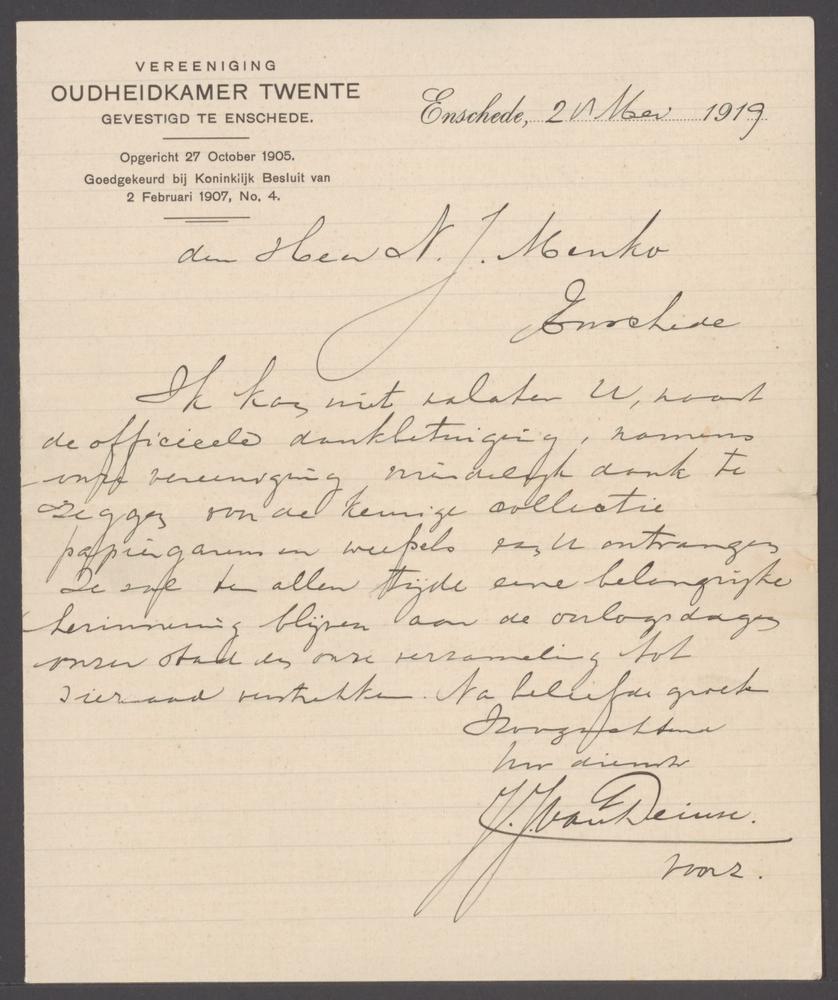 VEREENIGING
OUDHEIDKAMER TWENTE
GEVESTIGD TE ENSCHEDE.
Opgericht 27 October 1905.
Goedgekeurd bij Koninklijk Besluit van
2 Februari 1907, No. 4.
Enschede, Mei 1919
den Heer N. J. Menko
Enschede
Ik kan niet nalaten U, naast
de officieele dankbetuiging, namens
onze vereeniging vriendelijk dank te
zeggen voor de keurige collectie
papiergarens en weefsels van U ontvangen
Ze zal ten allen tijde eene belangrijke
herinnering blijven aan de oorlogsdagen
onzer stad en onze verzameling tot
sieraad verstrekken. Na beleefde groete
Hoogachtend
Uw dienstv
J. J. van Deinse.
voorz.